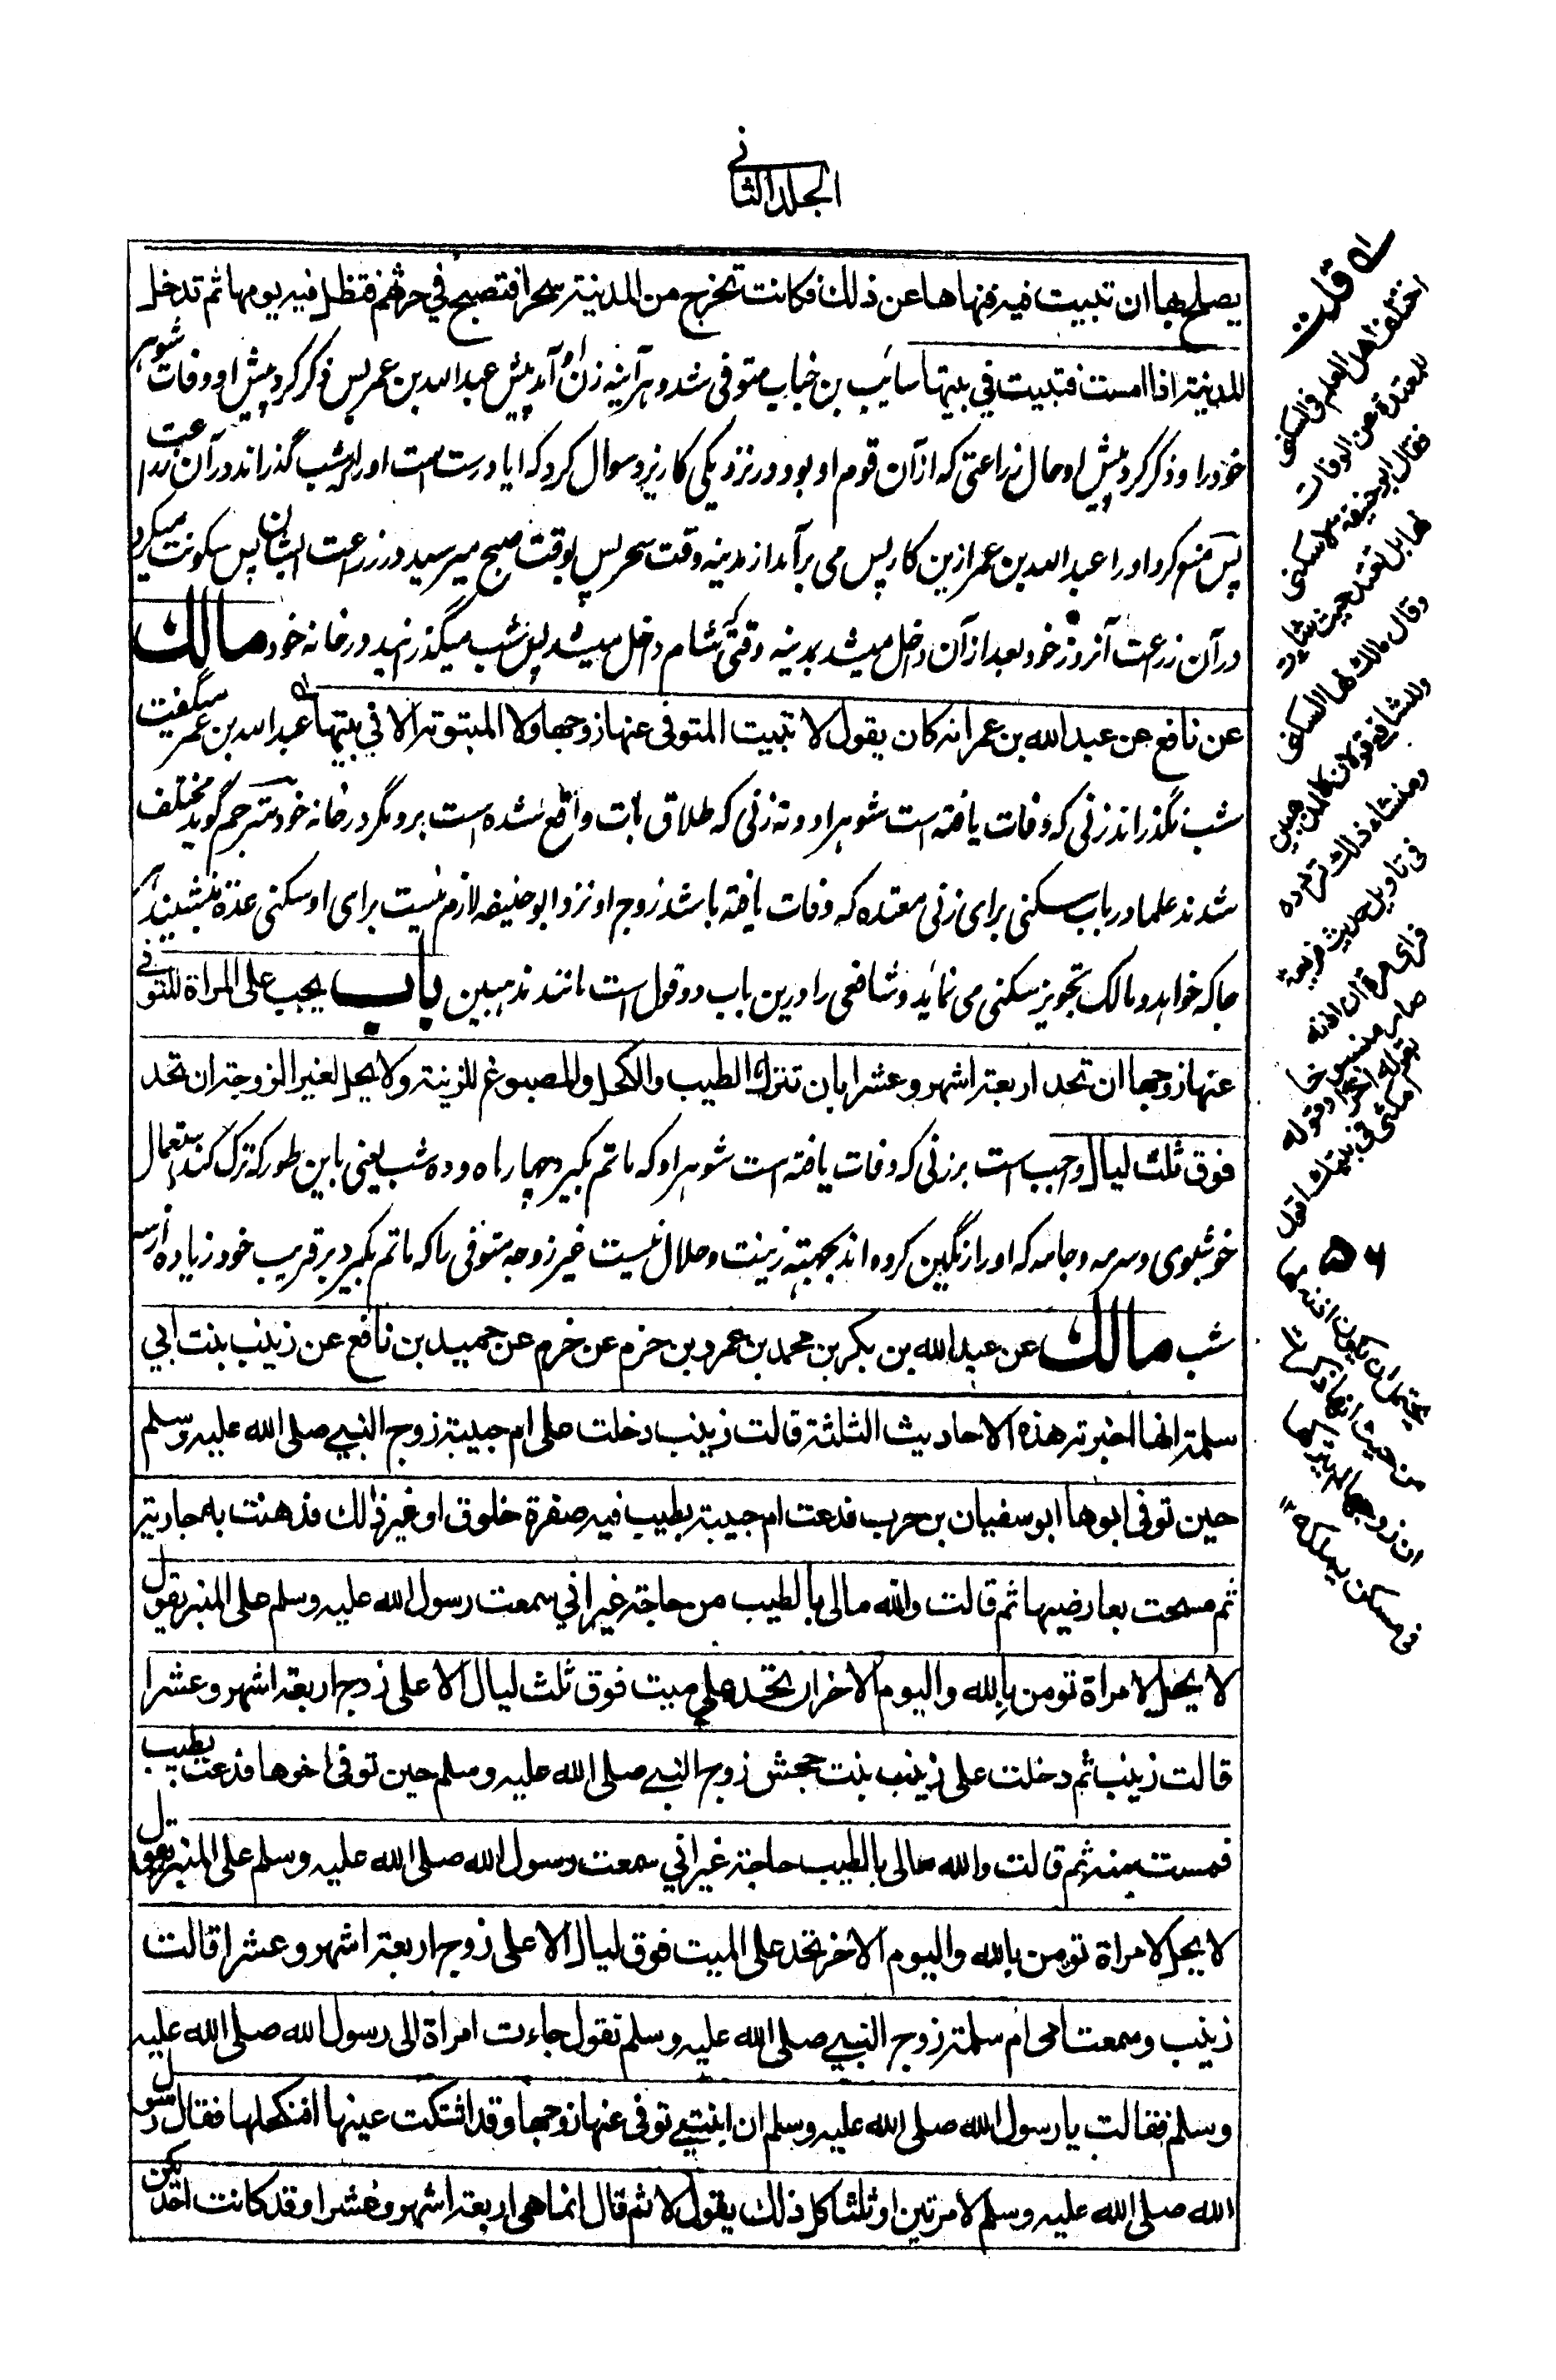 الجلد الثاني
يصلح بها ان تبيت فيه فنهاها عن ذلك فكانت تخرج من المدينة سحرا فتصبح في حرثهم فتظل فيه يومها ثم تدخل
المدينة اذا امست فتبيت في بيتها سائب بن خباب متوفى شد وهرآينه زن او آمد پيش عبد الله بن عمر پس ذكر كرد پيش او وفات شوهر
خود را و ذكر كرد پيش او حال زراعتى كه از آن قوم او بود در نزديكى كاريز و سوال كرد كه ايا درست است او را كه شب گذراند در آن زراعت
پس منع كرد او را عبد الله بن عمر ازين كار پس مى برآمد از مدينه وقت سحر پس بوقت صبح ميرسيد در زراعت ايشان پس سكونت ميكرد
در آن زراعت آنروز خود بعد از آن داخل ميشد بمدينه وقتى كه شام داخل ميشد پس شب ميگذرانيد در خانه خود مالك
عن نافع عن عبد الله بن عمر انه كان يقول لا تبيت المتوفى عنها زوجها ولا المبتوتة الا في بيتها عبد الله بن عمر ميگفت
شب نگذراند زنى كه وفات يافته است شوهر او و نه زنى كه طلاق بات واقع شده است برو مگر در خانه خود مترجم گويد مختلف
شدند علما در باب سكنى براى زنى معتده كه وفات يافته باشد زوج او نزد ابو حنيفه لازم نيست براى او سكنى عده بنشيند هر
جا كه خواهد و مالك تجويز سكنى مى نمايد و شافعى را درين باب دو قول است مانند مذهبين باب يجب على المراة المتوفى
عنها زوجها ان تحد اربعة اشهر وعشرا بان تترك الطيب والكحل والمصبوغ للزينة ولا يحل لغير الزوجة ان تحد
فوق ثلث ليال واجب است بر زنى كه وفات يافته است شوهر او كه ماتم بگيرد چهار ماه و ده شب يعنى باين طور كه ترك كند استعمال
خوشبوى و سرمه و جامه كه او را رنگين كرده اند بجهته زينت و حلال نيست غير زوجه متوفى را كه ماتم بگيرد بر قريب خود زياده از سه
شب مالك عن عبد الله بن بكر بن محمد بن عمرو بن حزم عن خرم عن حميد بن نافع عن زينب بنت ابي
سلمة انها اخبرته هذه الاحاديث الثلثة قالت زينب دخلت على ام حبيبة زوج النبي صلى الله عليه وسلم
حين توفى ابوها ابو سفيان بن حرب فدعت ام حبيبة بطيب فيه صفرة خلوق او غير ذلك فدهنت به جارية
ثم مسحت بعارضيها ثم قالت والله مالى بالطيب من حاجة غير اني سمعت رسول الله عليه وسلم على المنبر يقول
لا يحل لامراة تومن بالله واليوم الاخر ان تحد على ميت فوق ثلث ليال الا على زوج اربعة اشهر وعشرا
قالت زينب ثم دخلت على زينب بنت جحش زوج النبي صلى الله عليه وسلم حين توفى اخوها فدعت بطيب
فمست منه ثم قالت والله مالى بالطيب حاجة غير اني سمعت رسول الله صلى الله عليه وسلم على المنبر يقول
لا يحل لامراة تومن بالله واليوم الاخر تحد على الميت فوق ليال الا على زوج اربعة اشهر وعشرا قالت
زينب وسمعت امى ام سلمة زوج النبي صلى الله عليه وسلم تقول جاءت امراة الى رسول الله صلى الله عليه
وسلم فقالت يا رسول الله صلى الله عليه وسلم ان ابنتي توفى عنها زوجها وقد اشتكت عينها افنكحلها فقال رسول
الله صلى الله عليه وسلم لا مرتين او ثلثا كل ذلك يقول لا ثم قال انما هى اربعة اشهر وعشرا وقد كانت احدىكن
قلت
اختلف اهل العلم فى السكنى
للمعتدة عن الوفات
فقال ابو حنيفة لا سكنى
لها بل تعتد حيث شاءت
وقال مالك لها السكنى
وللشافعى قولان كالمذهبين
ومنشاء ذلك تردده
فى تاويل حديث فريعة
فراى مرة ان اذنه
صار منسوخا
بقوله اخرا وقوله
امكثى فى بيتك اقول
يحتمل ان يكون اذنه لها
من حيث انها ذكرت
ان زوجها لم يتركها
فى مسكن يملكه